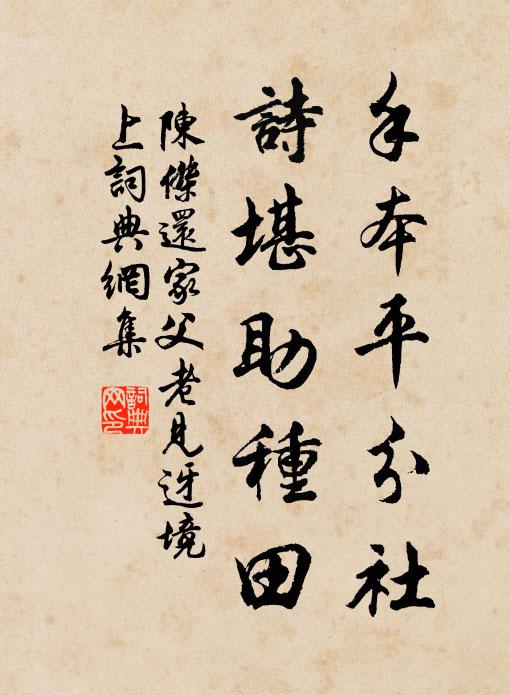 手本平分社
詩堪助種田
陳傑還家父老見迓境
上詞典網集
詞典
网印